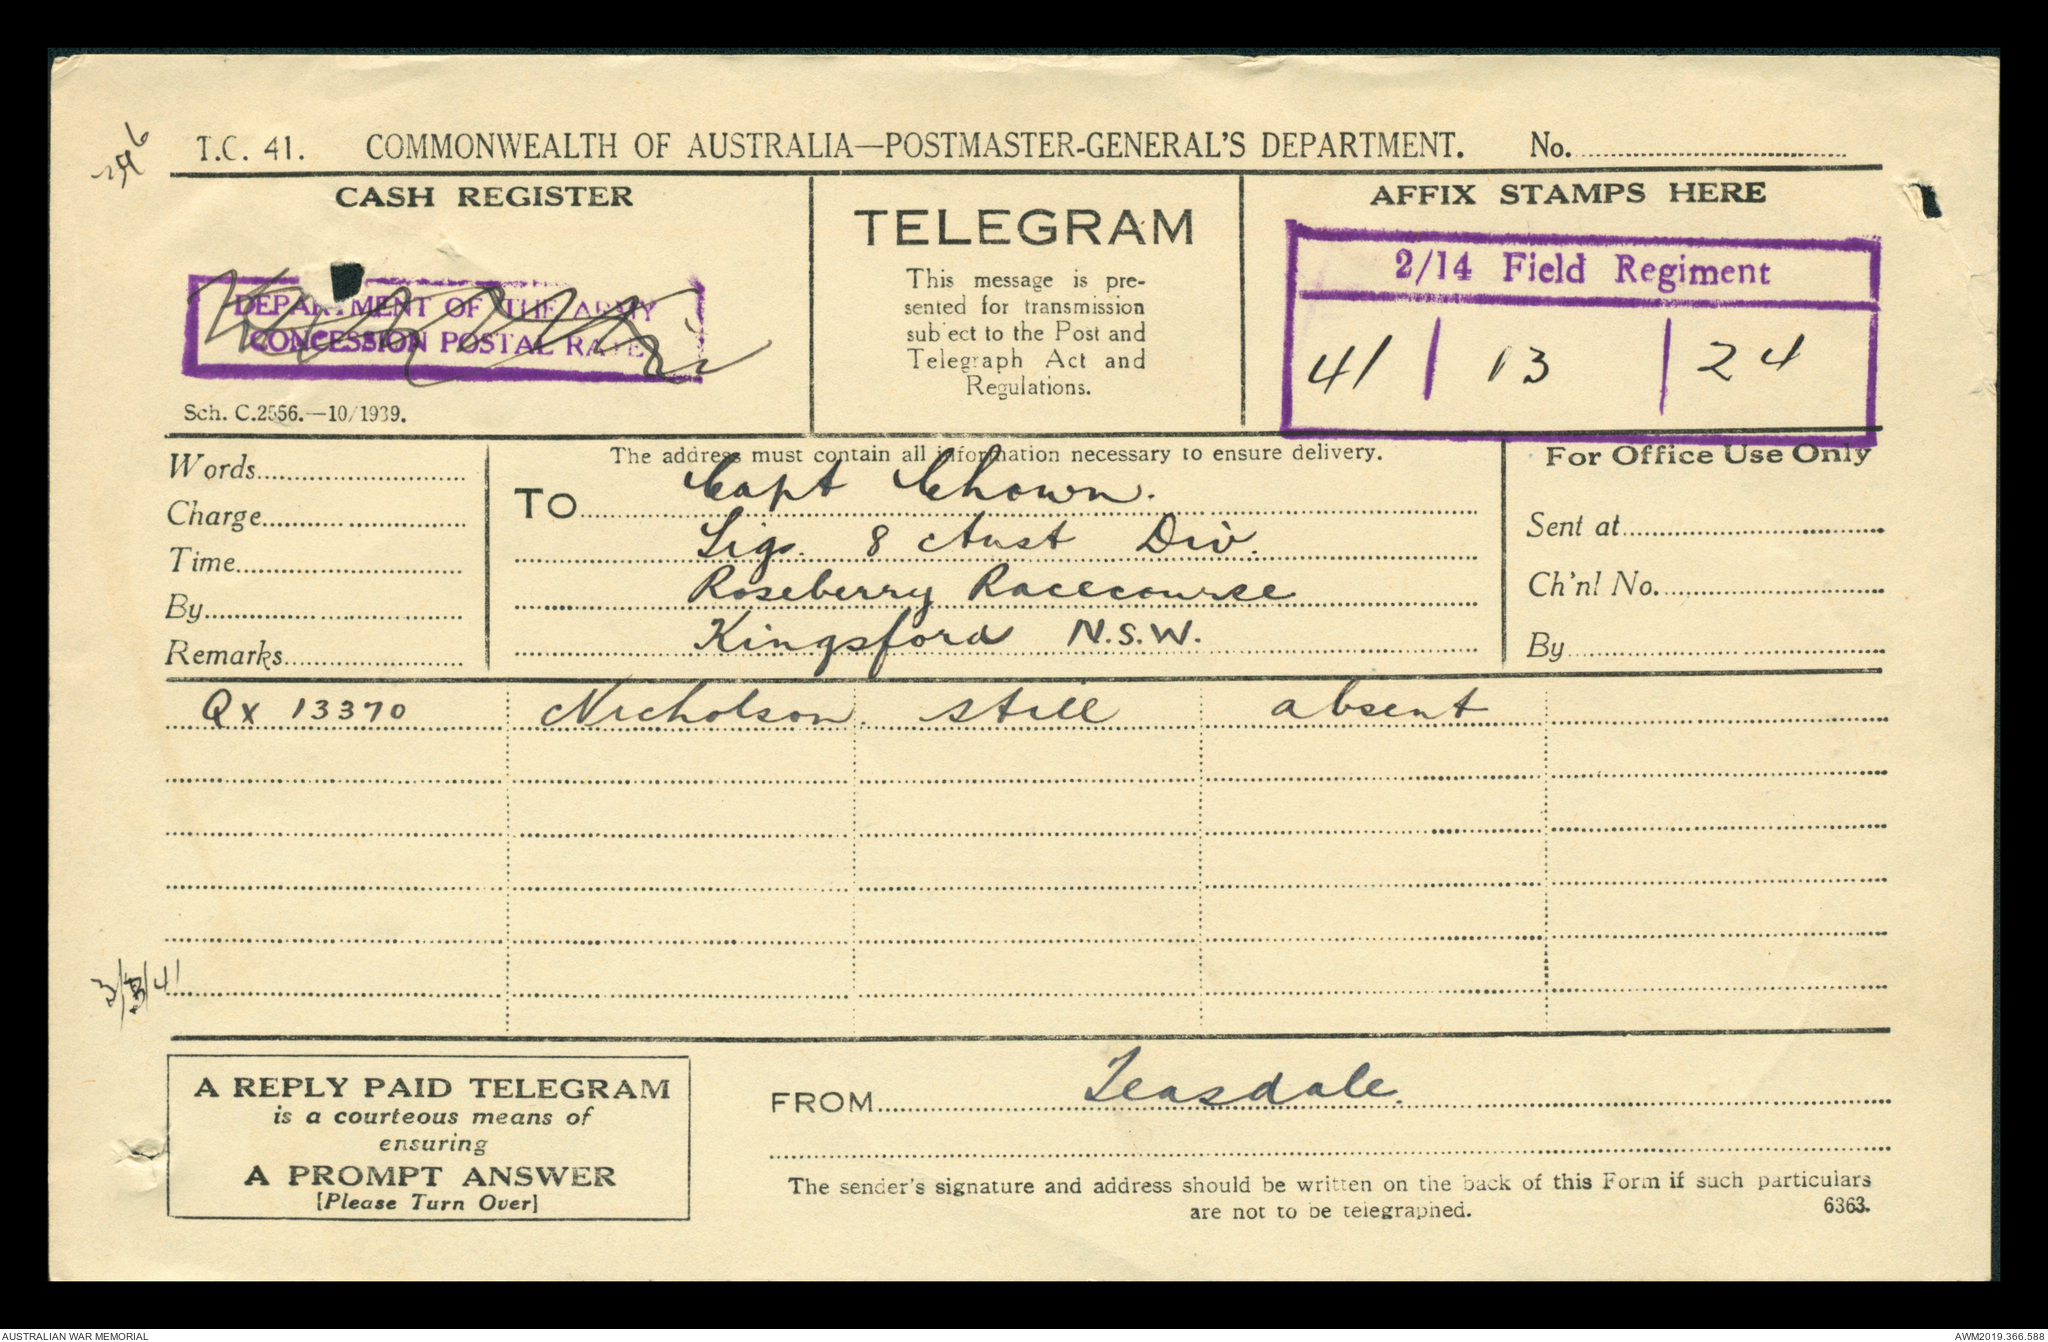 T.C. 41. COMMONWEALTH OF AUSTRALIA—POSTMASTER-GENERAL'S DEPARTMENT. No.
CASH REGISTER
DEPARTMENT OF THE ARMY
CONCESSION POSTAL RATE
Sch. C.2556.—10/1939.
TELEGRAM
This message is pre-
sented for transmission
subject to the Post and
Telegraph Act and
Regulations.
AFFIX STAMPS HERE
2/14 Field Regiment
41 | 13 | 24
Words
Charge
Time
By
Remarks
The address must contain all information necessary to ensure delivery.
TO Capt Chown.
Sigs. 8 Aust Div.
Roseberry Racecourse
Kingsford N.S.W.
For Office Use Only
Sent at
Ch'nl No.
By
QX 13370 Nicholson still absent
A REPLY PAID TELEGRAM
is a courteous means of
ensuring
A PROMPT ANSWER
[Please Turn Over]
FROM Teasdale.
The sender's signature and address should be written on the back of this Form if such particulars
are not to be telegraphed.
6363.
AUSTRALIAN WAR MEMORIAL
AWM2019.366.588